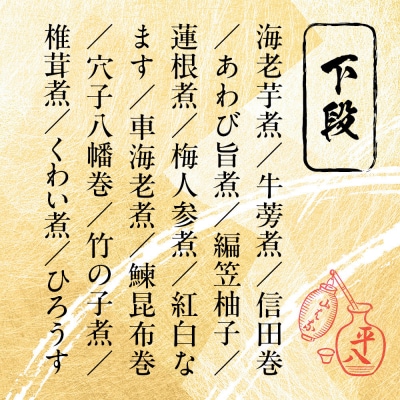 下段
海老芋煮／牛蒡煮／信田巻
／あわび旨煮／編笠柚子／
蓮根煮／梅人参煮／紅白な
ます／車海老煮／鰊昆布巻
／穴子八幡巻／竹の子煮／
椎茸煮／くわい煮／ひろうす
平八